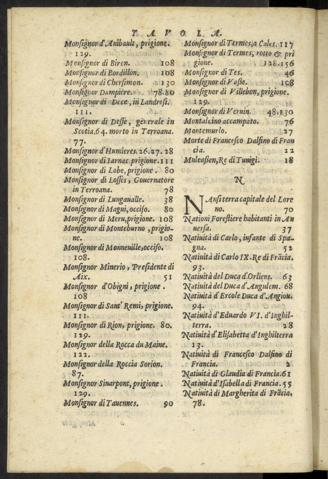 TAVOLA.
Monsignor d'Anibault, prigione.
129.
Monsignor di Biren. 108
Monsignor di Bordillon. 108
Monsignor di Chersimon. 130
Monsignor Dampierre. 78.80
Monsignor di Dece, in Landresi.
111.
Monsignor di Desse, generale in
Scotia, 64. morto in Terroana.
77.
Monsignor d'Humieres. 16.27.28
Monsignor di Iarnac.prigione.111
Monsignor di Lobe, prigione. 80
Monsignor di Losses, Gouernatore
in Terroana. 78
Monsignor di Lungamalle. 38
Monsignor di Magni, occiso. 80
Monsignor di Meru, prigione. 108
Monsignor di Monteburno, prigio-
ne. 108
Monsignor di Monneuille, occiso.
108.
Monsignor Minerio, Presidente di
Aix. 51
Monsignor d'Obigni, prigione.
108
Monsignor di Sant' Remi, prigione.
111.
Monsignor di Riou, prigione. 80.
129.
Monsignor della Rocca du Maine.
122.
Monsignor della Roccia Sorion.
87.
Monsignor Sinarpont, prigione.
129.
Monsignor di Tauennes. 90
Monsignor di Termes, a Cales. 117
Monsignor di Termes, rotto & pri
gione. 128.156
Monsignor di Tes. 46
Monsignor di Vasse. 108
Monsignor di Villebon, prigione.
129.
Monsignor di Veruin. 48.130
Montalcino accampato. 76
Montemurlo. 27
Morte di Francesco Dalfino di Fran
cia. 22
Muleasem, Re di Tunigi. 18
N
NAnsi terra capitale del Lore
no. 70
Nationi Forestiere habitanti in An
uersa. 37
Natiuità di Carlo, infante di Spa-
gna. 52
Natiuità di Carlo IX. Re di Frãcia.
93.
Natiuità del Duca d'Orliens. 63
Natiuità del Duca d'Angulem. 68
Natiuità d'Ercole Duca d'Angiou.
94.
Natiuità d'Eduardo VI. d'Inghil-
terra. 28
Natiuità d'Elisabetta d'Inghilterra
13.
Natiuità di Francesco Dalfino di
Francia. 2
Natiuità di Glaudia di Francia. 61
Natiuità d'Isabella di Francia. 55
Natiuità di Margherita di Frãcia.
78.